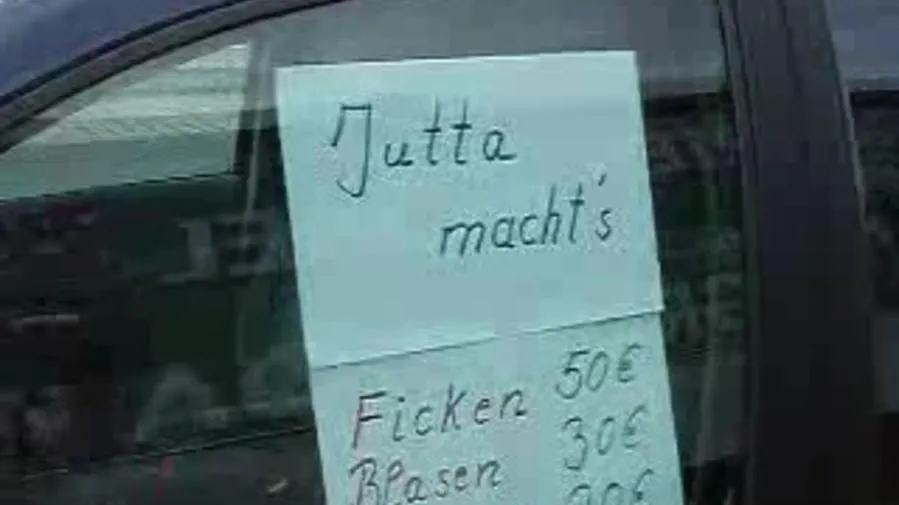 Jutta
macht's
Ficken 50€
Blasen 30€